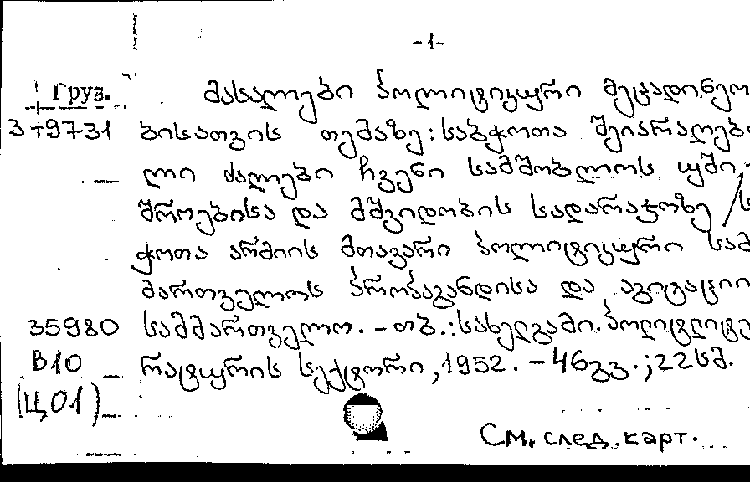 -1-
Груз. მასალები პოლიტიკური მეცადინეო
3-9731 ბისათვის თემაზე: საბჭოთა შეიარაღებუ
ლი ძალები ჩვენი სამშობლოს უში-
შროებისა და მშვიდობის სადარაჯოზე / ს
ჭოთა არმიის მთავარი პოლიტიკური სამ
მართველოს პროპაგანდისა და აგიტაციი
35980 სამმართველო. - თბ.: სახელგამი. პოლიტლიტე
В10 რატურის სექტორი, 1952. - 46 გვ.; 22 სმ.
(Ц01)
См. след. карт.